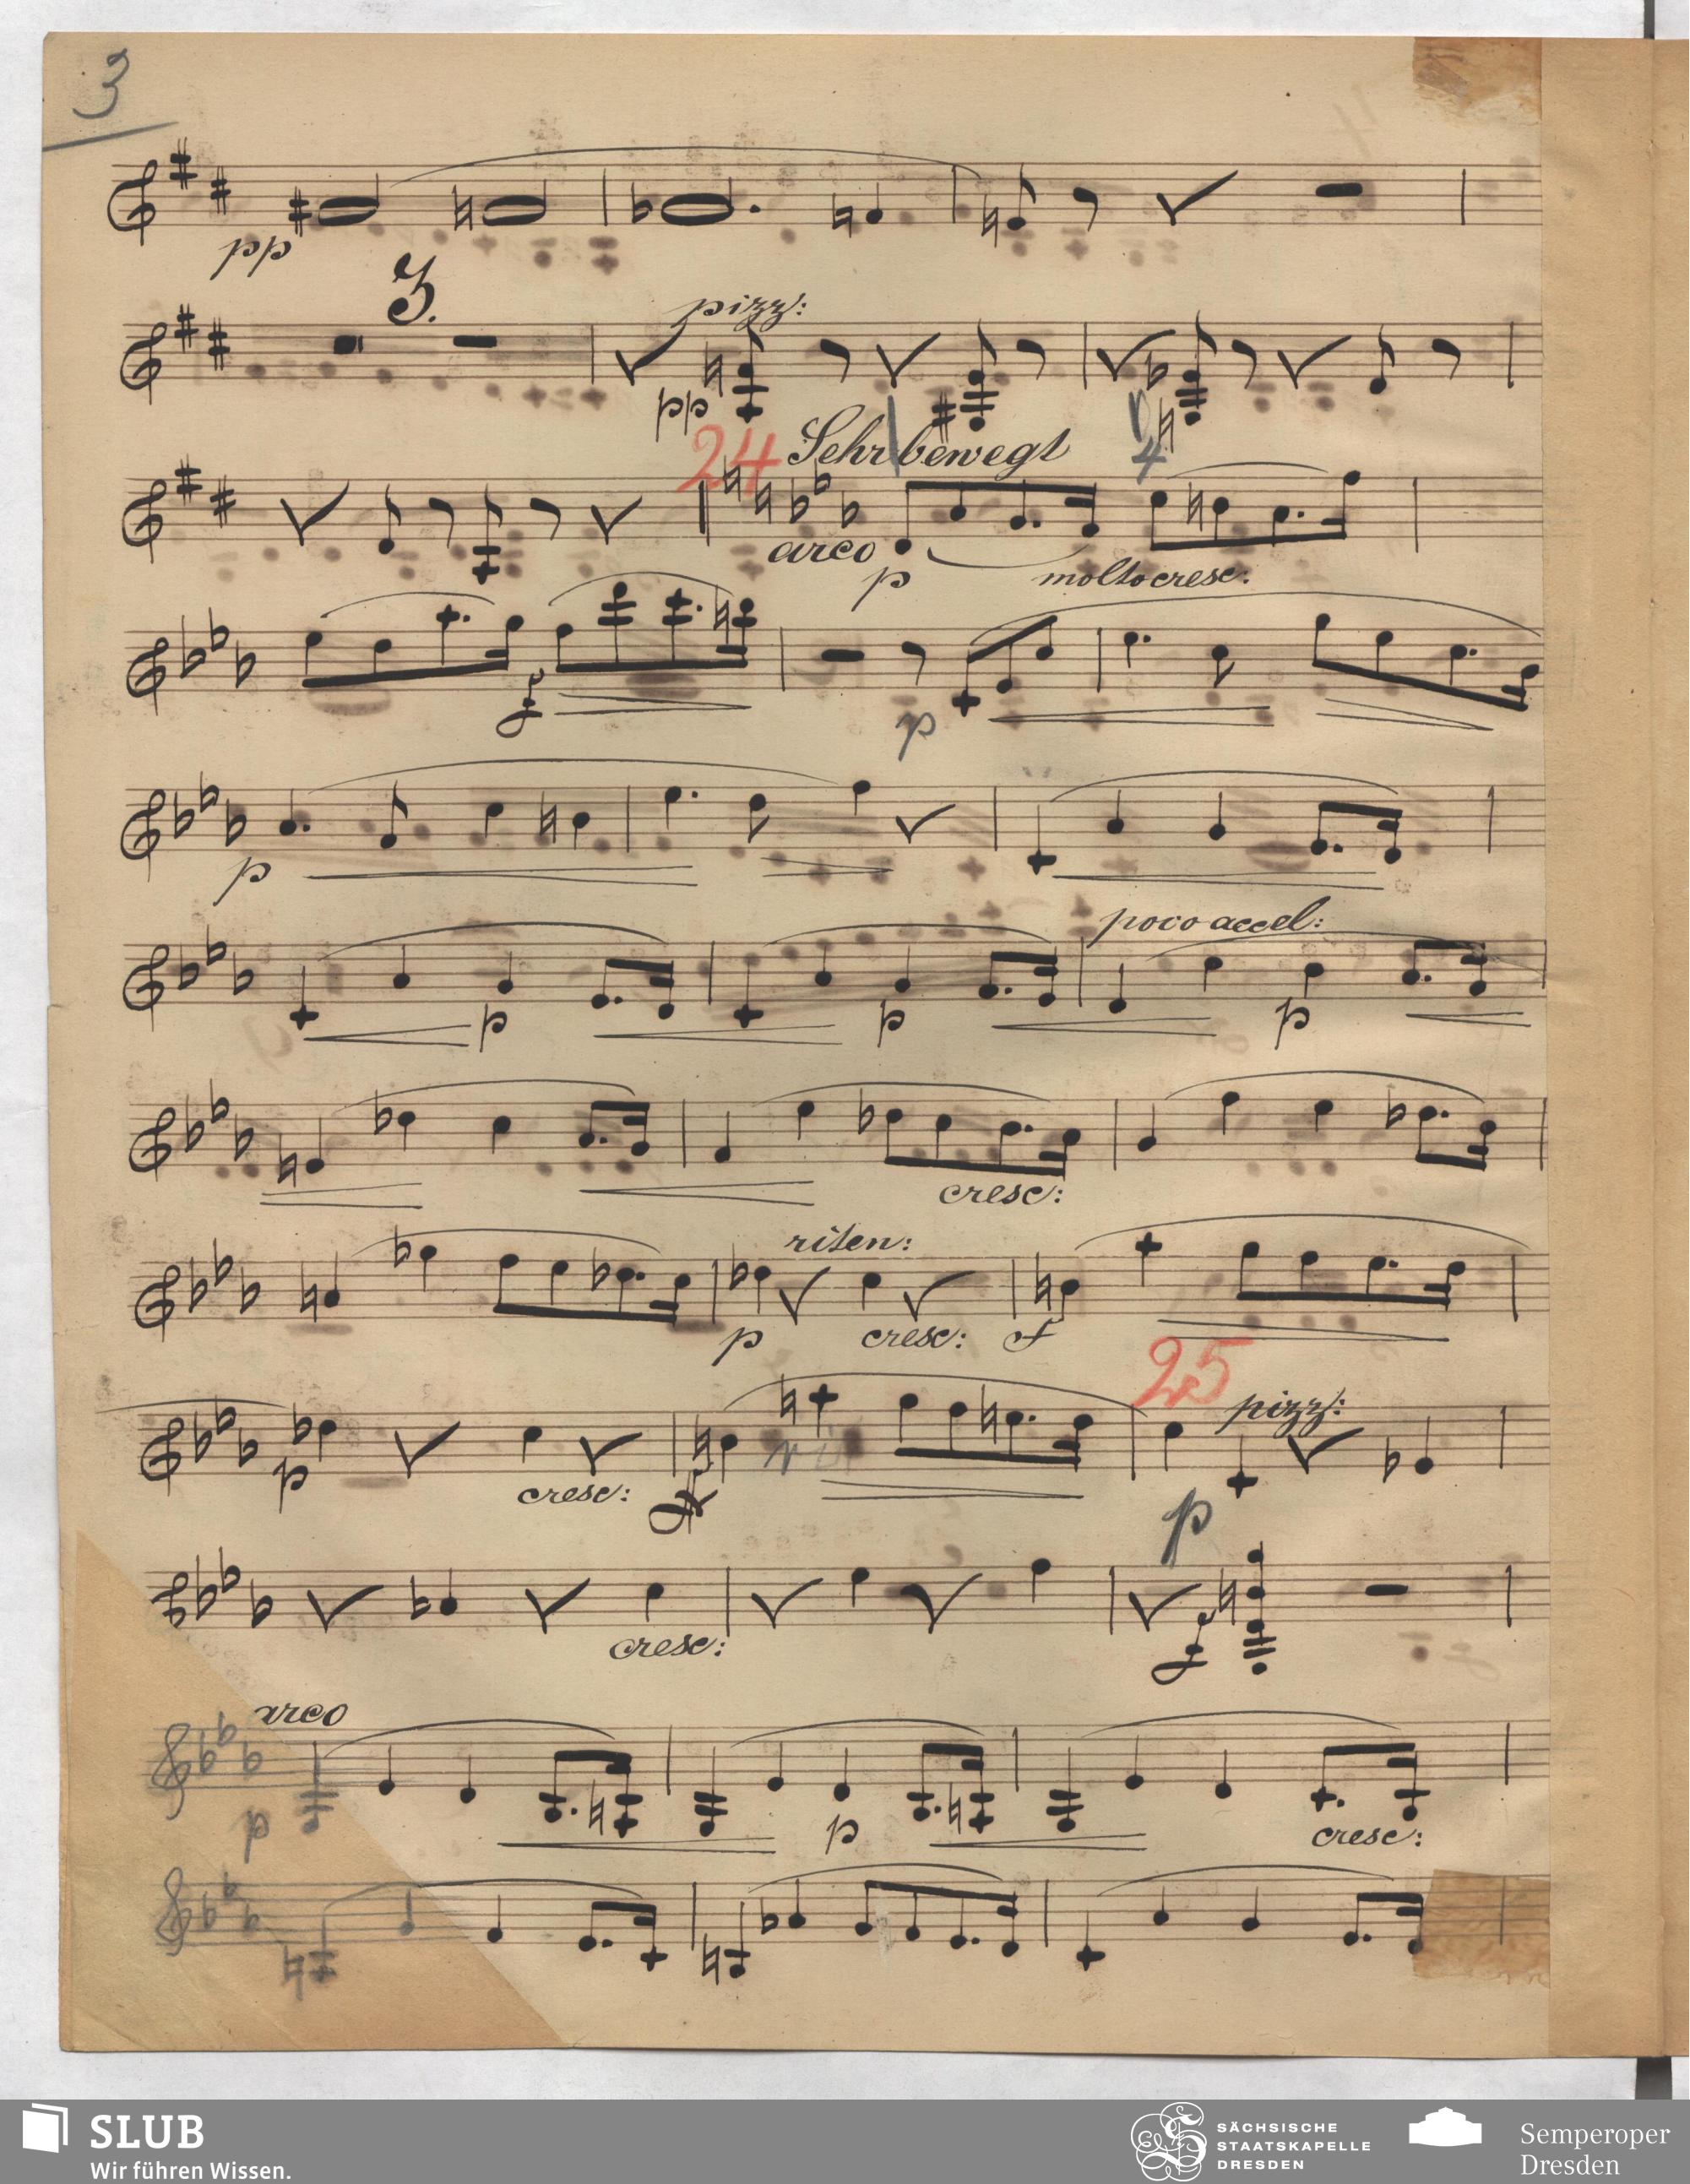 3
pp
3.
pizz:
pp
24 Sehr bewegt
4
arco
p
molto cresc:
f
p
p
poco accel:
p
p
p
cresc:
riten:
p
cresc:
f
25
pizz:
p
cresc:
ff
p
cresc:
f
arco
p
p
cresc:
SLUB
Wir führen Wissen.
SÄCHSISCHE
STAATSKAPELLE
DRESDEN
Semperoper
Dresden